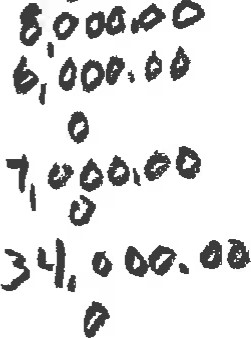 8,000.00
6,000.00
0
7,000.00
0
34,000.00
0